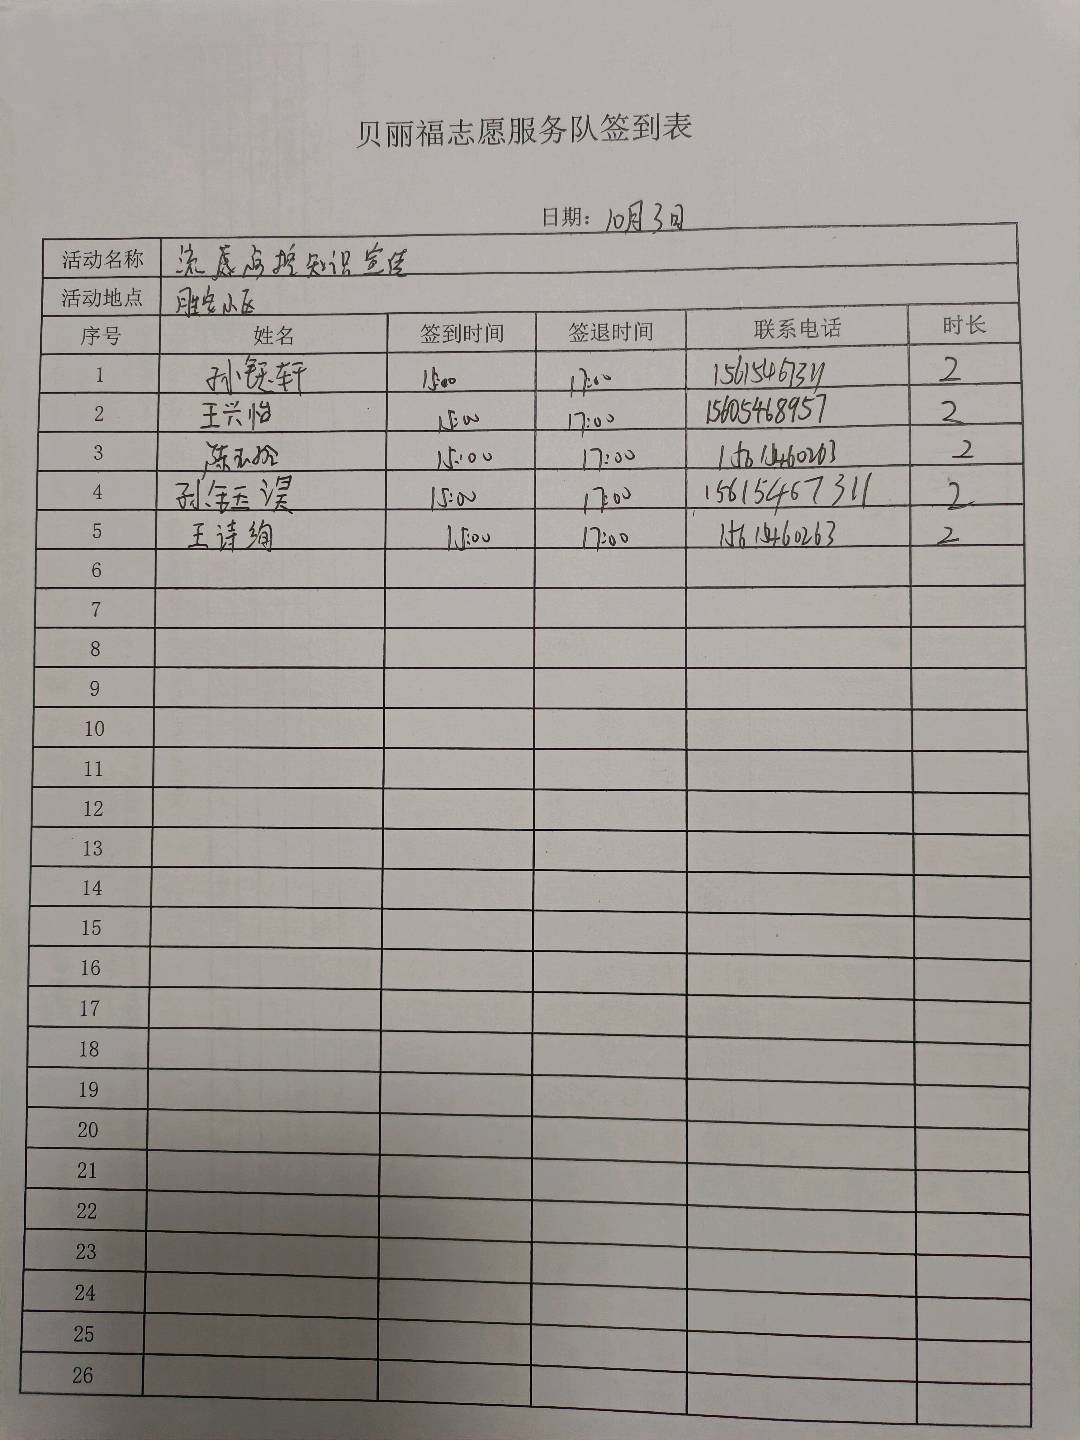 贝丽福志愿服务队签到表
日期：10月3日
活动名称 流感防控知识宣传
活动地点 胜宏小区
序号 姓名 签到时间 签退时间 联系电话 时长
1 孙 轩 15:00 17:00 15615467311 2
2 王兴怡 15:00 17:00 15605468957 2
3 陈 15:00 17:00 15615460263 2
4 孙钰淏 15:00 17:00 15615467311 2
5 王诗绚 15:00 17:00 15615460263 2
6
7
8
9
10
11
12
13
14
15
16
17
18
19
20
21
22
23
24
25
26